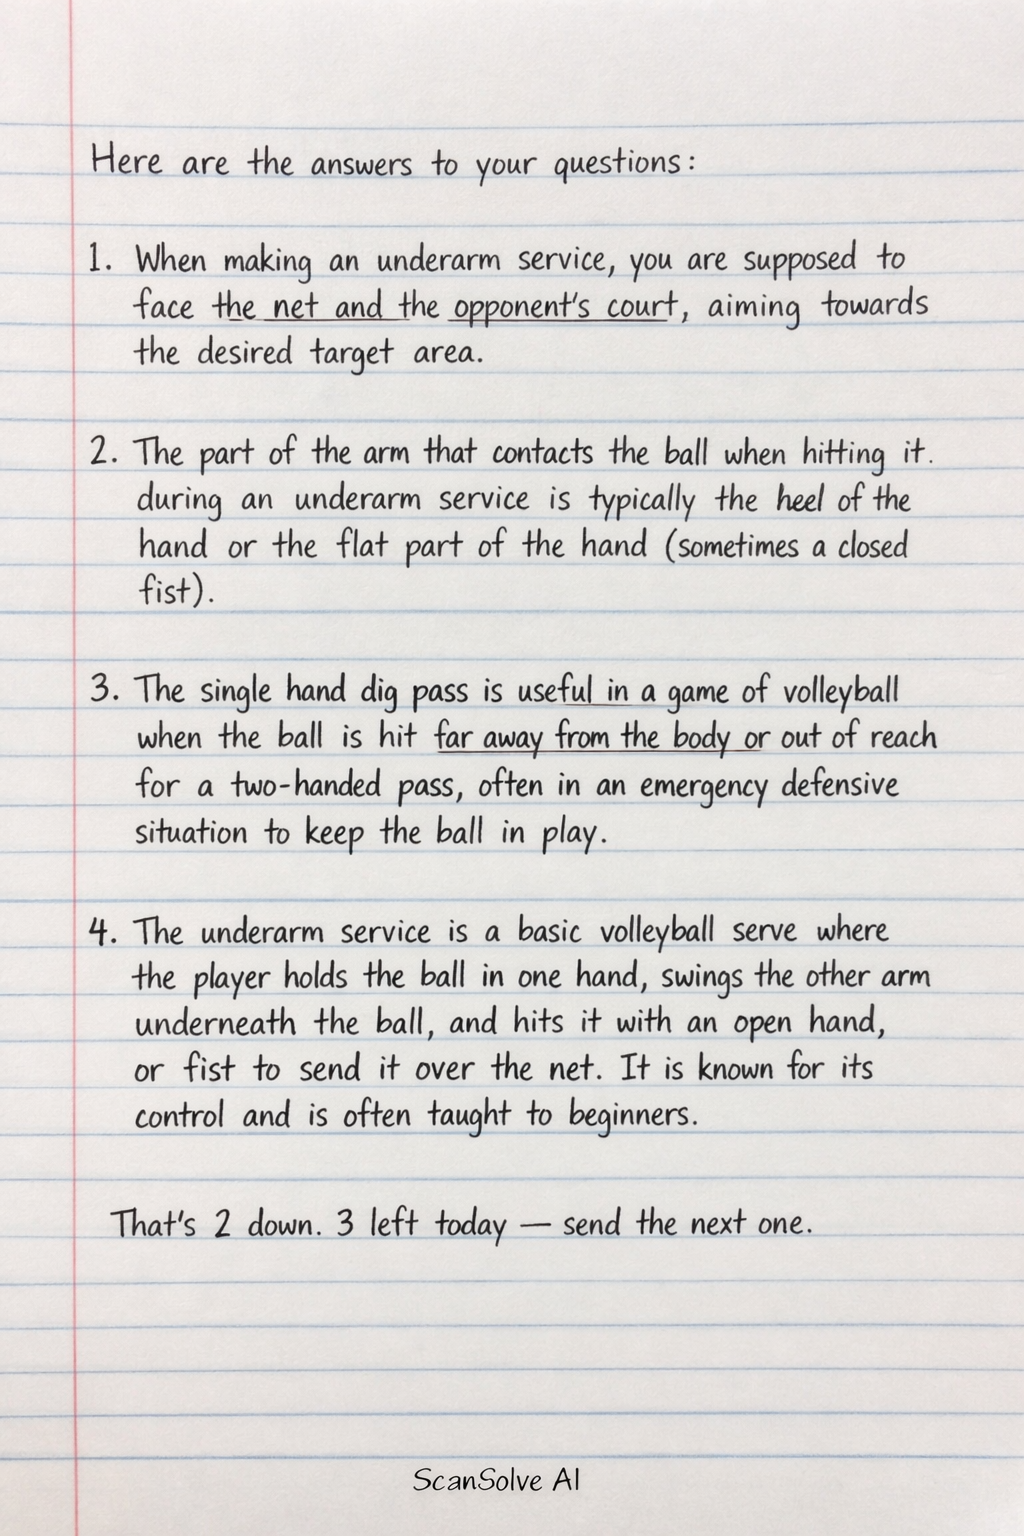 Here are the answers to your questions:
1. When making an underarm service, you are supposed to
face the net and the opponent's court, aiming towards
the desired target area.
2. The part of the arm that contacts the ball when hitting it.
during an underarm service is typically the heel of the
hand or the flat part of the hand (sometimes a closed
fist).
3. The single hand dig pass is useful in a game of volleyball
when the ball is hit far away from the body or out of reach
for a two-handed pass, often in an emergency defensive
situation to keep the ball in play.
4. The underarm service is a basic volleyball serve where
the player holds the ball in one hand, swings the other arm
underneath the ball, and hits it with an open hand,
or fist to send it over the net. It is known for its
control and is often taught to beginners.
That's 2 down. 3 left today — send the next one.
ScanSolve AI